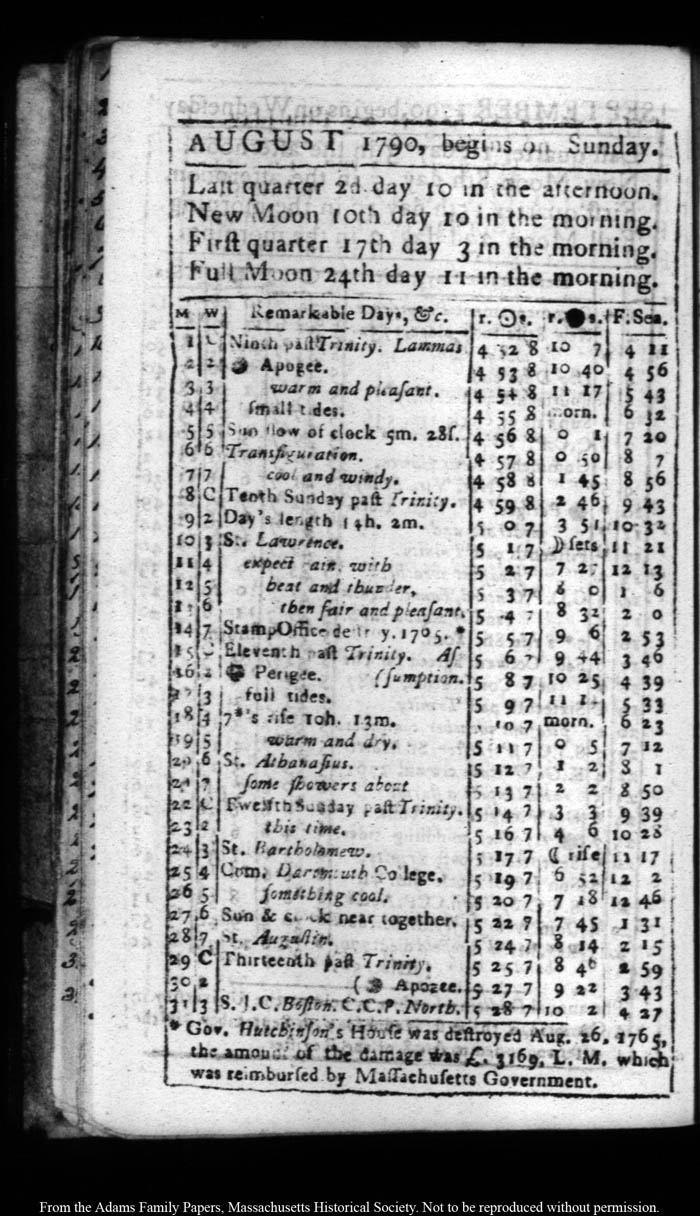 AUGUST 1790, begins on Sunday.
Laſt quarter 2d day 10 in the afternoon.
New Moon 10th day 10 in the morning.
Firſt quarter 17th day 3 in the morning.
Full Moon 24th day 11 in the morning.
M W Remarkable Days, &c. r. ☉s. r. ●s. F. Sea.
1 C Ninth paſt Trinity. Lammas 4 52 8 10 7 4 11
2 2 Apogee. 4 53 8 10 40 4 56
3 3 warm and pleaſant. 4 54 8 11 17 5 43
4 4 ſmall tides. 4 55 8 morn. 6 32
5 5 Sun ſlow of clock 5m. 28ſ. 4 56 8 0 1 7 20
6 6 Transfiguration. 4 57 8 0 50 8 7
7 7 cool and windy. 4 58 8 1 45 8 56
8 C Tenth Sunday paſt Trinity. 4 59 8 2 46 9 43
9 2 Day's length 14h. 2m. 5 0 7 3 51 10 32
10 3 St. Lawrence. 5 1 7 ☽ ſets 11 21
11 4 expect rain, with 5 2 7 7 27 12 13
12 5 heat and thunder, 5 3 7 8 0 1 6
13 6 then fair and pleaſant. 5 4 7 8 32 2 0
14 7 Stamp Office 5 5 7 9 6 2 53
15 C Eleventh paſt Trinity. Aſ 5 6 7 9 44 3 46
16 2 Perigee. (ſumption. 5 8 7 10 25 4 39
17 3 full tides. 5 9 7 11 5 33
18 4 7*'s riſe 10h. 13m. 5 10 7 morn. 6 23
19 5 warm and dry. 5 11 7 0 5 7 12
20 6 St. Athanaſius. 5 12 7 1 2 8 1
21 7 ſome ſhowers about 5 13 7 2 2 8 50
22 C Twelfth Sunday paſt Trinity. 5 14 7 3 3 9 39
23 2 this time. 5 16 7 4 6 10 28
24 3 St. Bartholomew. 5 17 7 ☾ riſe 11 17
25 4 Com. Dartmouth College. 5 19 7 6 52 12 2
26 5 ſomething cool. 5 20 7 7 18 12 46
27 6 Sun & clock near together. 5 22 7 7 45 1 31
28 7 St. Auguſtin. 5 24 7 8 14 2 15
29 C Thirteenth paſt Trinity. 5 25 7 8 46 2 59
30 2 ( Apogee. 5 27 7 9 22 3 43
31 3 S. J. C. Boſton. C. C. P. North. 5 28 7 10 2 4 27
* Gov. Hutchinſon's Houſe was deſtroyed Aug. 26, 1765,
the amount of the damage was £. 3169, L. M. which
was reimburſed by Maſſachuſetts Government.
From the Adams Family Papers, Massachusetts Historical Society. Not to be reproduced without permission.